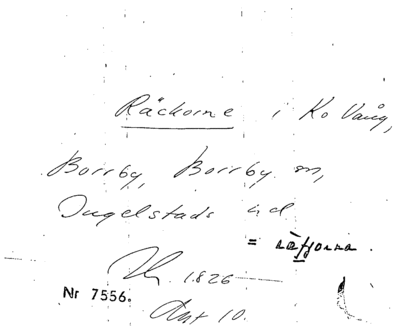 Räckorne i Ko Vång,
Borrby, Borrby sn,
Ingelstads hd
= räfjorna.
1826
Nr 7556.
Akt 10.